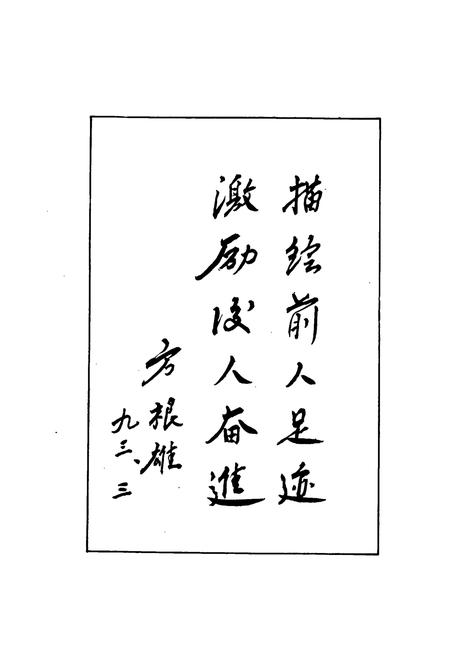 描绘前人足迹
激励後人奋進
方根雄
九三、三